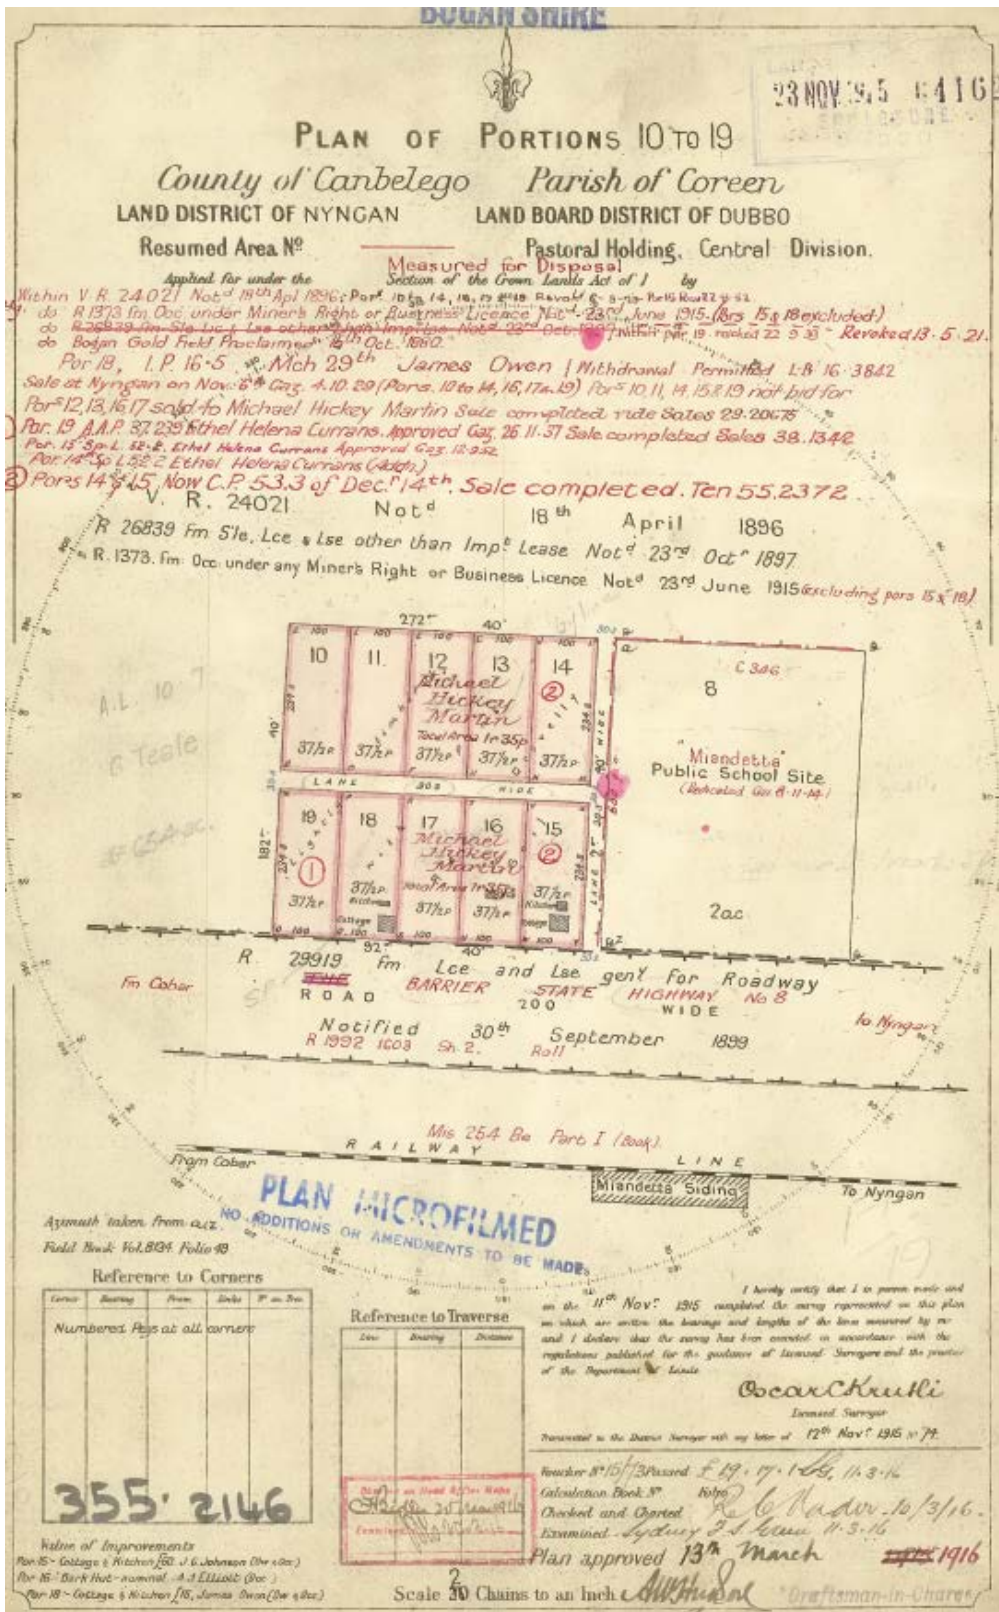 BOGAN SHIRE
23 NOV
PLAN OF PORTIONS 10 TO 19
County of Canbelego Parish of Coreen
LAND DISTRICT OF NYNGAN LAND BOARD DISTRICT OF DUBBO
Resumed Area No Pastoral Holding, Central Division.
Measured for Disposal
Applied for under the Section of the Crown Lands Act of 1 by
Within V.R. 24021 Notd 18th Apl 1896
do R1373 fm Occ under Miner's Right or Business Licence Notd 23rd June 1915 (Pors 15 & 18 excluded)
do R26839 fm Sle Lce & Lse other than Imp Lse Notd 23rd Oct Revoked 13.5.21.
do Bogan Gold Field Proclaimed Oct. 1880.
Por 18, I.P. 16-5 Mch 29th James Owen Withdrawal Permitted LB 16.3842
Sale at Nyngan on Nov. 6th Gaz. 4.10.29 (Pors. 10 to 14, 16, 17 & 19) Pors 10, 11, 14, 15 & 19 not bid for
Pors 12,13,16,17 sold to Michael Hickey Martin Sale completed vide Sales 29.20675
Por. 19 A.A.P. 37.239 Ethel Helena Currans. Approved Gaz. 26.11.37 Sale completed Sales 38.1342
Por. 15 Sp. L. 52.2. Ethel Helena Currans Approved Gaz.
Por. 14 Sp L 52.2 Ethel Helena Currans (Addn.)
② Pors 14 & 15 Now C.P. 53.3 of Decr 14th. Sale completed. Ten 55.2372
V. R. 24021 Notd 18th April 1896
R 26839 Fm Sle, Lce & Lse other than Impt Lease Notd 23rd Octr 1897
R. 1373. fm. Occ. under any Miner's Right or Business Licence Notd 23rd June 1915 (excluding pors 15 & 18)
272° 40'
10 11 12 13 14
100 100 100 100 100
Michael
Hickey
Martin
Total Area 1r 35p
②
37½p 37½p 37½p 37½p 37½p
LANE 30.3 WIDE
19 18 17 16 15
Michael
Hickey
Martin
①
②
Total Area 1r 35p
37½p 37½p 37½p 37½p 37½p
Kitchen Kitchen
Cottage Cottage
100 100 100 100 100
92° 40'
182°
C 346
8
"Miandetta"
Public School Site
(Dedicated Gaz 8-11-14)
2ac
A.L. 10
G Teale
R. 29919 fm Lce and Lse genl for Roadway
Fm Cobar
ROAD BARRIER STATE HIGHWAY No 8
200 WIDE
to Nyngan
Notified 30th September 1899
R 1992 1603 Sh. 2. Roll
Mis 254 Be Part I (Book)
RAILWAY LINE
From Cobar
Miandetta Siding
To Nyngan
PLAN MICROFILMED
NO ADDITIONS OR AMENDMENTS TO BE MADE
Azimuth taken from a.z.
Field Book Vol. 8134 Folio 49
Reference to Corners
Corner Bearing From Links No on Tree
Numbered Pegs at all corners
Reference to Traverse
Line Bearing Distance
I hereby certify that I in person made and
on the 11th Novr 1915 completed the survey represented on this plan
on which are written the bearings and lengths of the lines measured by me
and I declare that the survey has been executed in accordance with the
regulations published for the guidance of Licensed Surveyors and the practice
of the Department of Lands
Oscar C Krutli
Licensed Surveyor
Transmitted to the District Surveyor with my letter of 12th Novr 1915 No 74
Voucher No 15/73 Passed £19.17.1 11.3.16
Calculation Book No Folio
Checked and Charted 10/3/16.
Examined Sydney 11.3.16
Plan approved 13th March 1916
355. 2146
Value of Improvements
Por 15 - Cottage & Kitchen £80. J.G. Johnson (Owr & Occ)
Por 16 - Bark Hut - nominal - A.J Elliott (Occ)
Por 18 - Cottage & Kitchen £15, James Owen (Ow & Occ)
Scale 2 Chains to an Inch
Draftsman-in-Charge